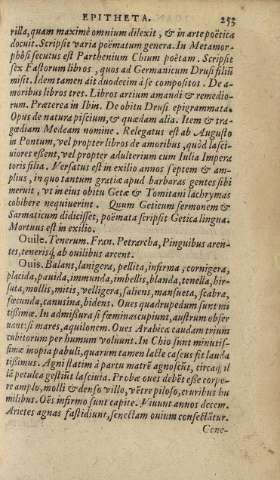 EPITHETA. 253
rilla, quam maximè omnium dilexit, & in arte poëtica
docuit. Scripsit varia poëmatum genera. In Metamor-
phōsi secutus est Parthenium Chium poëtam. Scripsit
sex Fastorum libros, quos ad Germanicum Drusi filiū
misit. Idem tamen ait duodecim à se compositos. De a-
moribus libros tres. Libros artium amandi & remedio-
rum. Præterea in Ibin. De obitu Drusi epigrammata.
Opus de natura piscium, & quædam alia. Item & tra-
gœdiam Medeam nomine. Relegatus est ab Augusto
in Pontum, vel propter libros de amoribus, quòd lasci-
uiores essent, vel propter adulterium cum Iulia Impera
toris filia. Versatus est in exilio annos septem & am-
plius, in quo tantum gratiæ apud barbaras gentes sibi
meruit, vt in eius obitu Getæ & Tomitani lachrymas
cohibere nequiuerint. Quum Geticum sermonem &
Sarmaticum didicisset, poëmata scripsit Getica lingua.
Mortuus est in exilio.
Ouile. Tenerum. Fran. Petrarcha, Pinguibus aren-
tes, tenerisq́, ab ouilibus arcent.
Ouis. Balant, lanigera, pellita, infirma, cornigera,
placida, pauida, immunda, imbellis, blanda, tenella, hir-
suta, mollis, mitis, velligera, saliens, mansueta, scabra,
fœcunda, canusina, bidens. Oues quadrupedum sunt mi
tissimæ. In admissura si fœmina scupiunt, austrum obser
uant: si mares, aquilonem. Oues Arabicæ caudam trium
cubitorum per humum voluunt. In Chio sunt minutis-
simæ inopia pabuli, quarum tamen lacte caseus fit lauda
tissimus. Agni statim à partu matrē agnoscūt, circaq́ il
lā petulca gestiūt lasciuia. Probæ oues debēt esse corpo-
re amplo, molli & denso villo, vētre piloso, cruribus hu
milibus. Oēs infirmo sunt capite. Viuunt annos decem.
Arietes agnas fastidiunt, senectam ouium consectātur.
Cene-